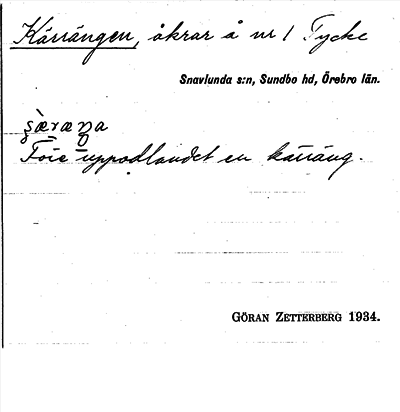 Kärrängen, åkrar å nr 1 Tycke
Snavlunda s:n, Sundbo hd, Örebro län.
Före uppodlandet en kärräng.
GÖRAN ZETTERBERG 1934.